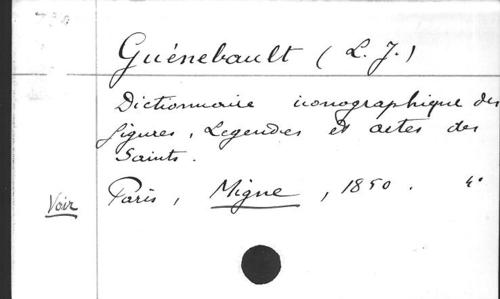 Guénebault (L. J.)
Dictionnaire iconographique des
figures, Legendes et actes des
Saints.
Voir Paris, Migne, 1850. 4°